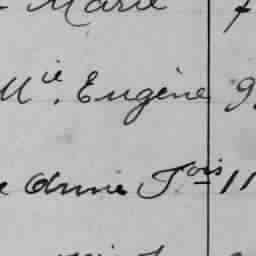 Marie 7
Mie. Eugène 9
Annie Fois 11